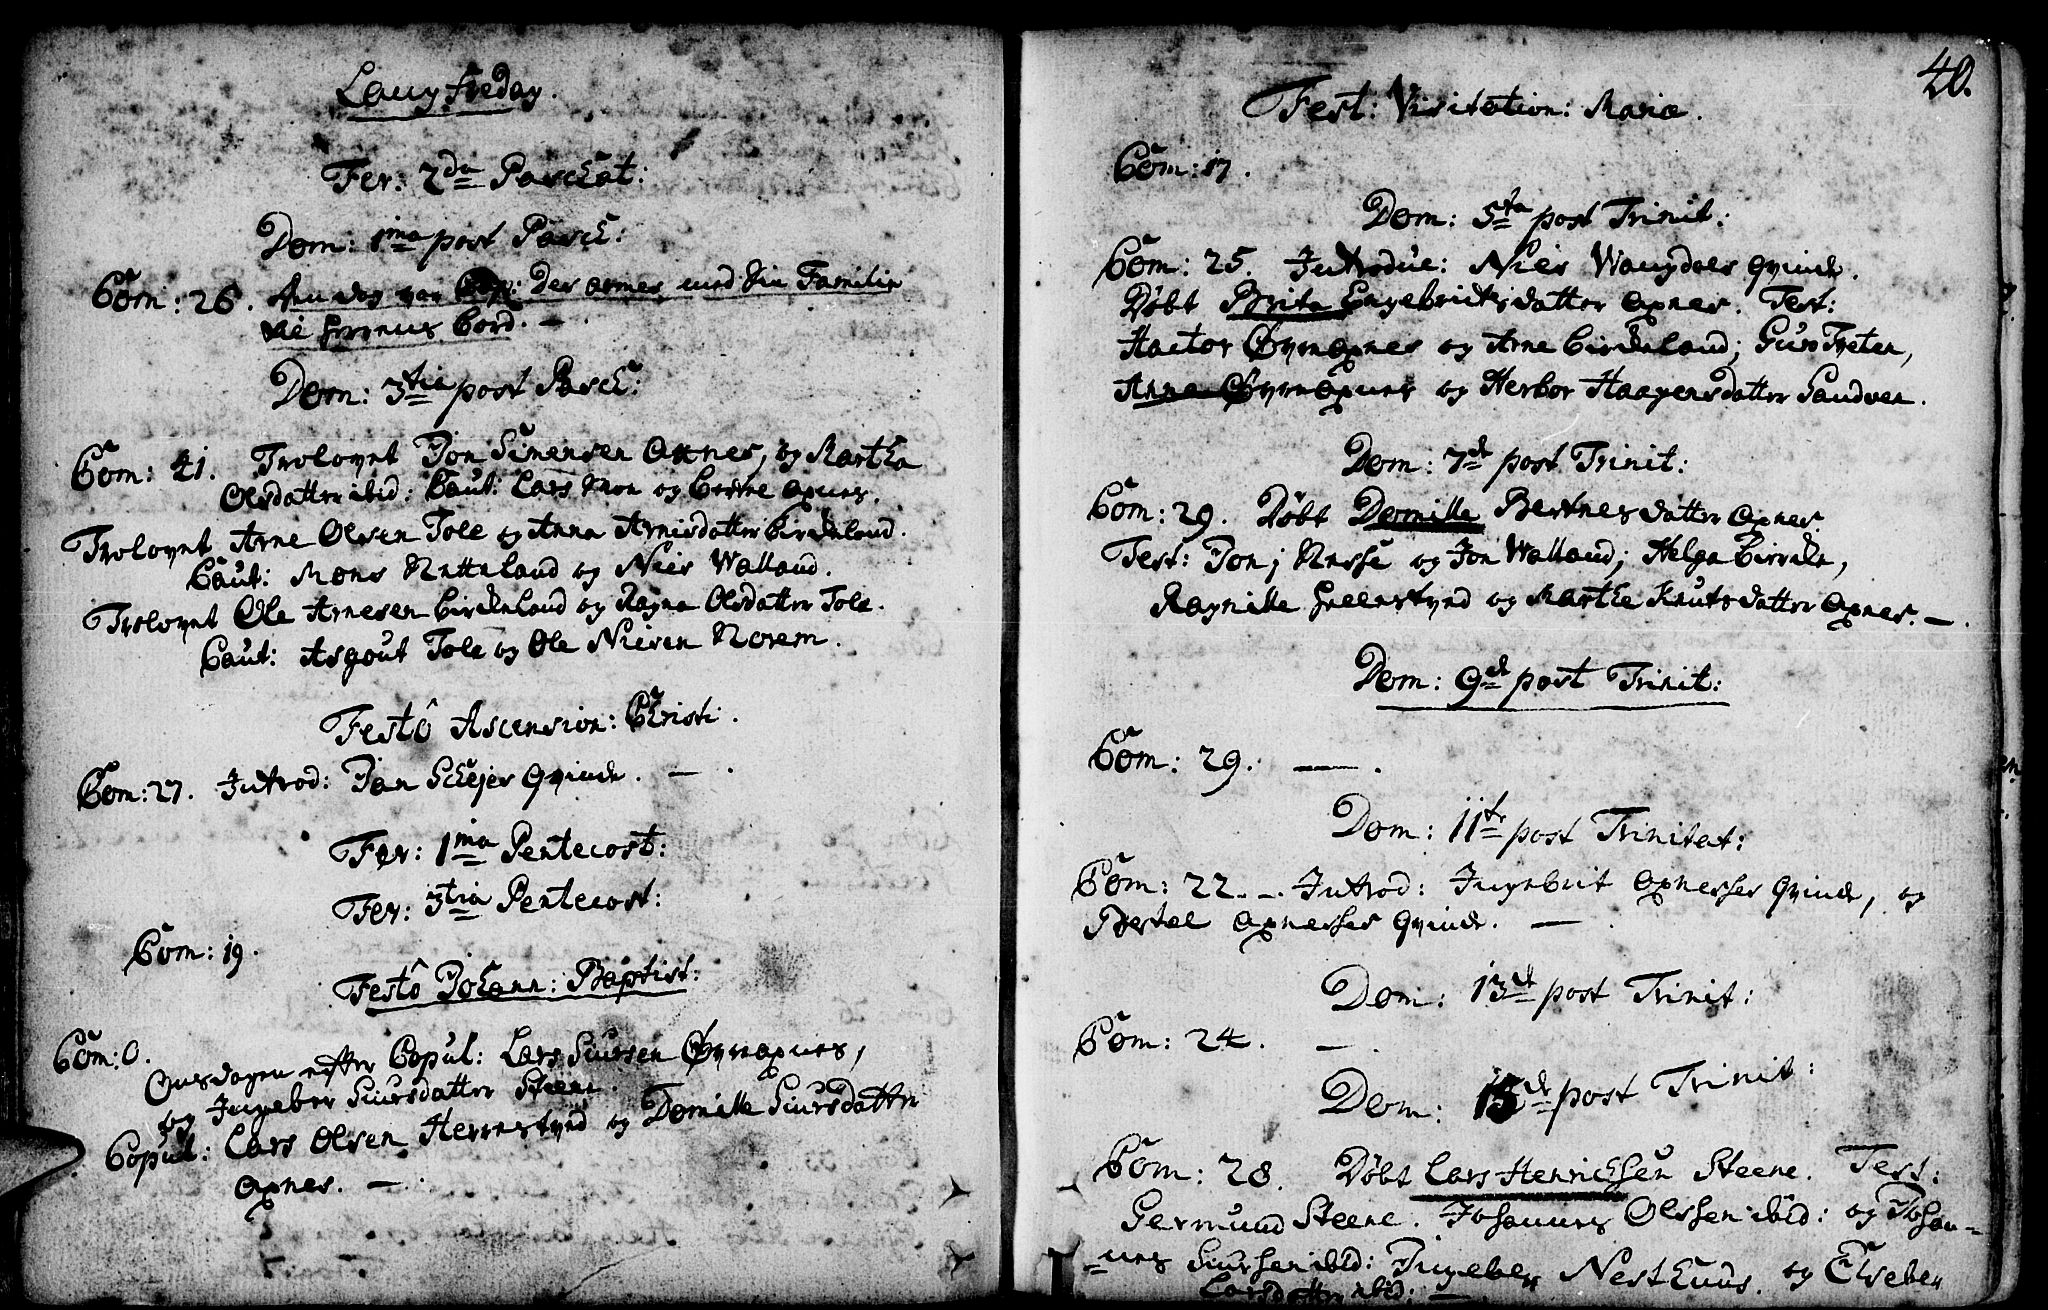 Lang fredag.
Fer: 2da Paschat:
Dom: 1ma post Pasch:
Com: 26. Ann dag var Cap: Des armes med sin Familie
til Herrens bord. —
Dom: 3tia post Pasch:
Com: 41. Trolovet Jon Simensen Axnes, og Martha
Olsdatter ibid: Caut: Lars Moe og Børne Axnes.
Trolovet Arne Olsen Tole og Anna Arnisdatter Birckeland.
Caut: Mons Netteland og Niels Walland.
Trolovet Ole Arnesen Birckeland og Ragna Olsdatter Tole.
Caut: Asgout Tole og Ole Nielsen Norem.
Festô Ascension: Christi.
Com: 27. Introd: Jan Schejes Qvinde. — .
Fer: 1ma Pentecost:
Fer: 3tia Pentecost:
Com: 19.
Festô Johann: Baptist:
Com: 0.
Onsdagen efter Copul: Lars Siursen Øvreaxnes,
og Ingeber Siursdatter Steene.
Copul: Lars Olsen Herrestved og Domille Siursdatter
Axnes. — .
40.
Fest: Visitation: Mariæ.
Com: 17.
Dom: 5ta post Trinit:
Com: 25. Introdue: Niels Wangdals Qvinde.
Døbt Brita Engebricktsdatter Axnes. Test:
Hactor Øvreaxnes og Arne Birckeland; Guro Tveten,
Anna Øvreaxnes og Herbor Haagensdatter Sandven.
Dom: 7de post Trinit:
Com: 29. Døbt Domille Bertnesdatter Axnes.
Test: Jon i Nesse og Jon Walland; Helga Bircke,
Ragnille Greenstved og Marthe Knutsdatter Axnes. — .
Dom: 9de post Trinit:
Com: 29. — .
Dom: 11te post Trinitat:
Com: 22. — . Introd: Ingebrit Axnesses Qvinde, og
Bertel Axnesses Qvinde. — .
Dom: 13de post Trinit:
Com: 24. — .
Dom: 15de post Trinit:
Com: 28. Døbt Lars Henrichsen Steene. Test:
Germund Steene. Johannes Olssen ibid: og Johan-
nes Siursen ibid: Ingeber Nesthuus, og Elseber
Larsdatter ibid: —